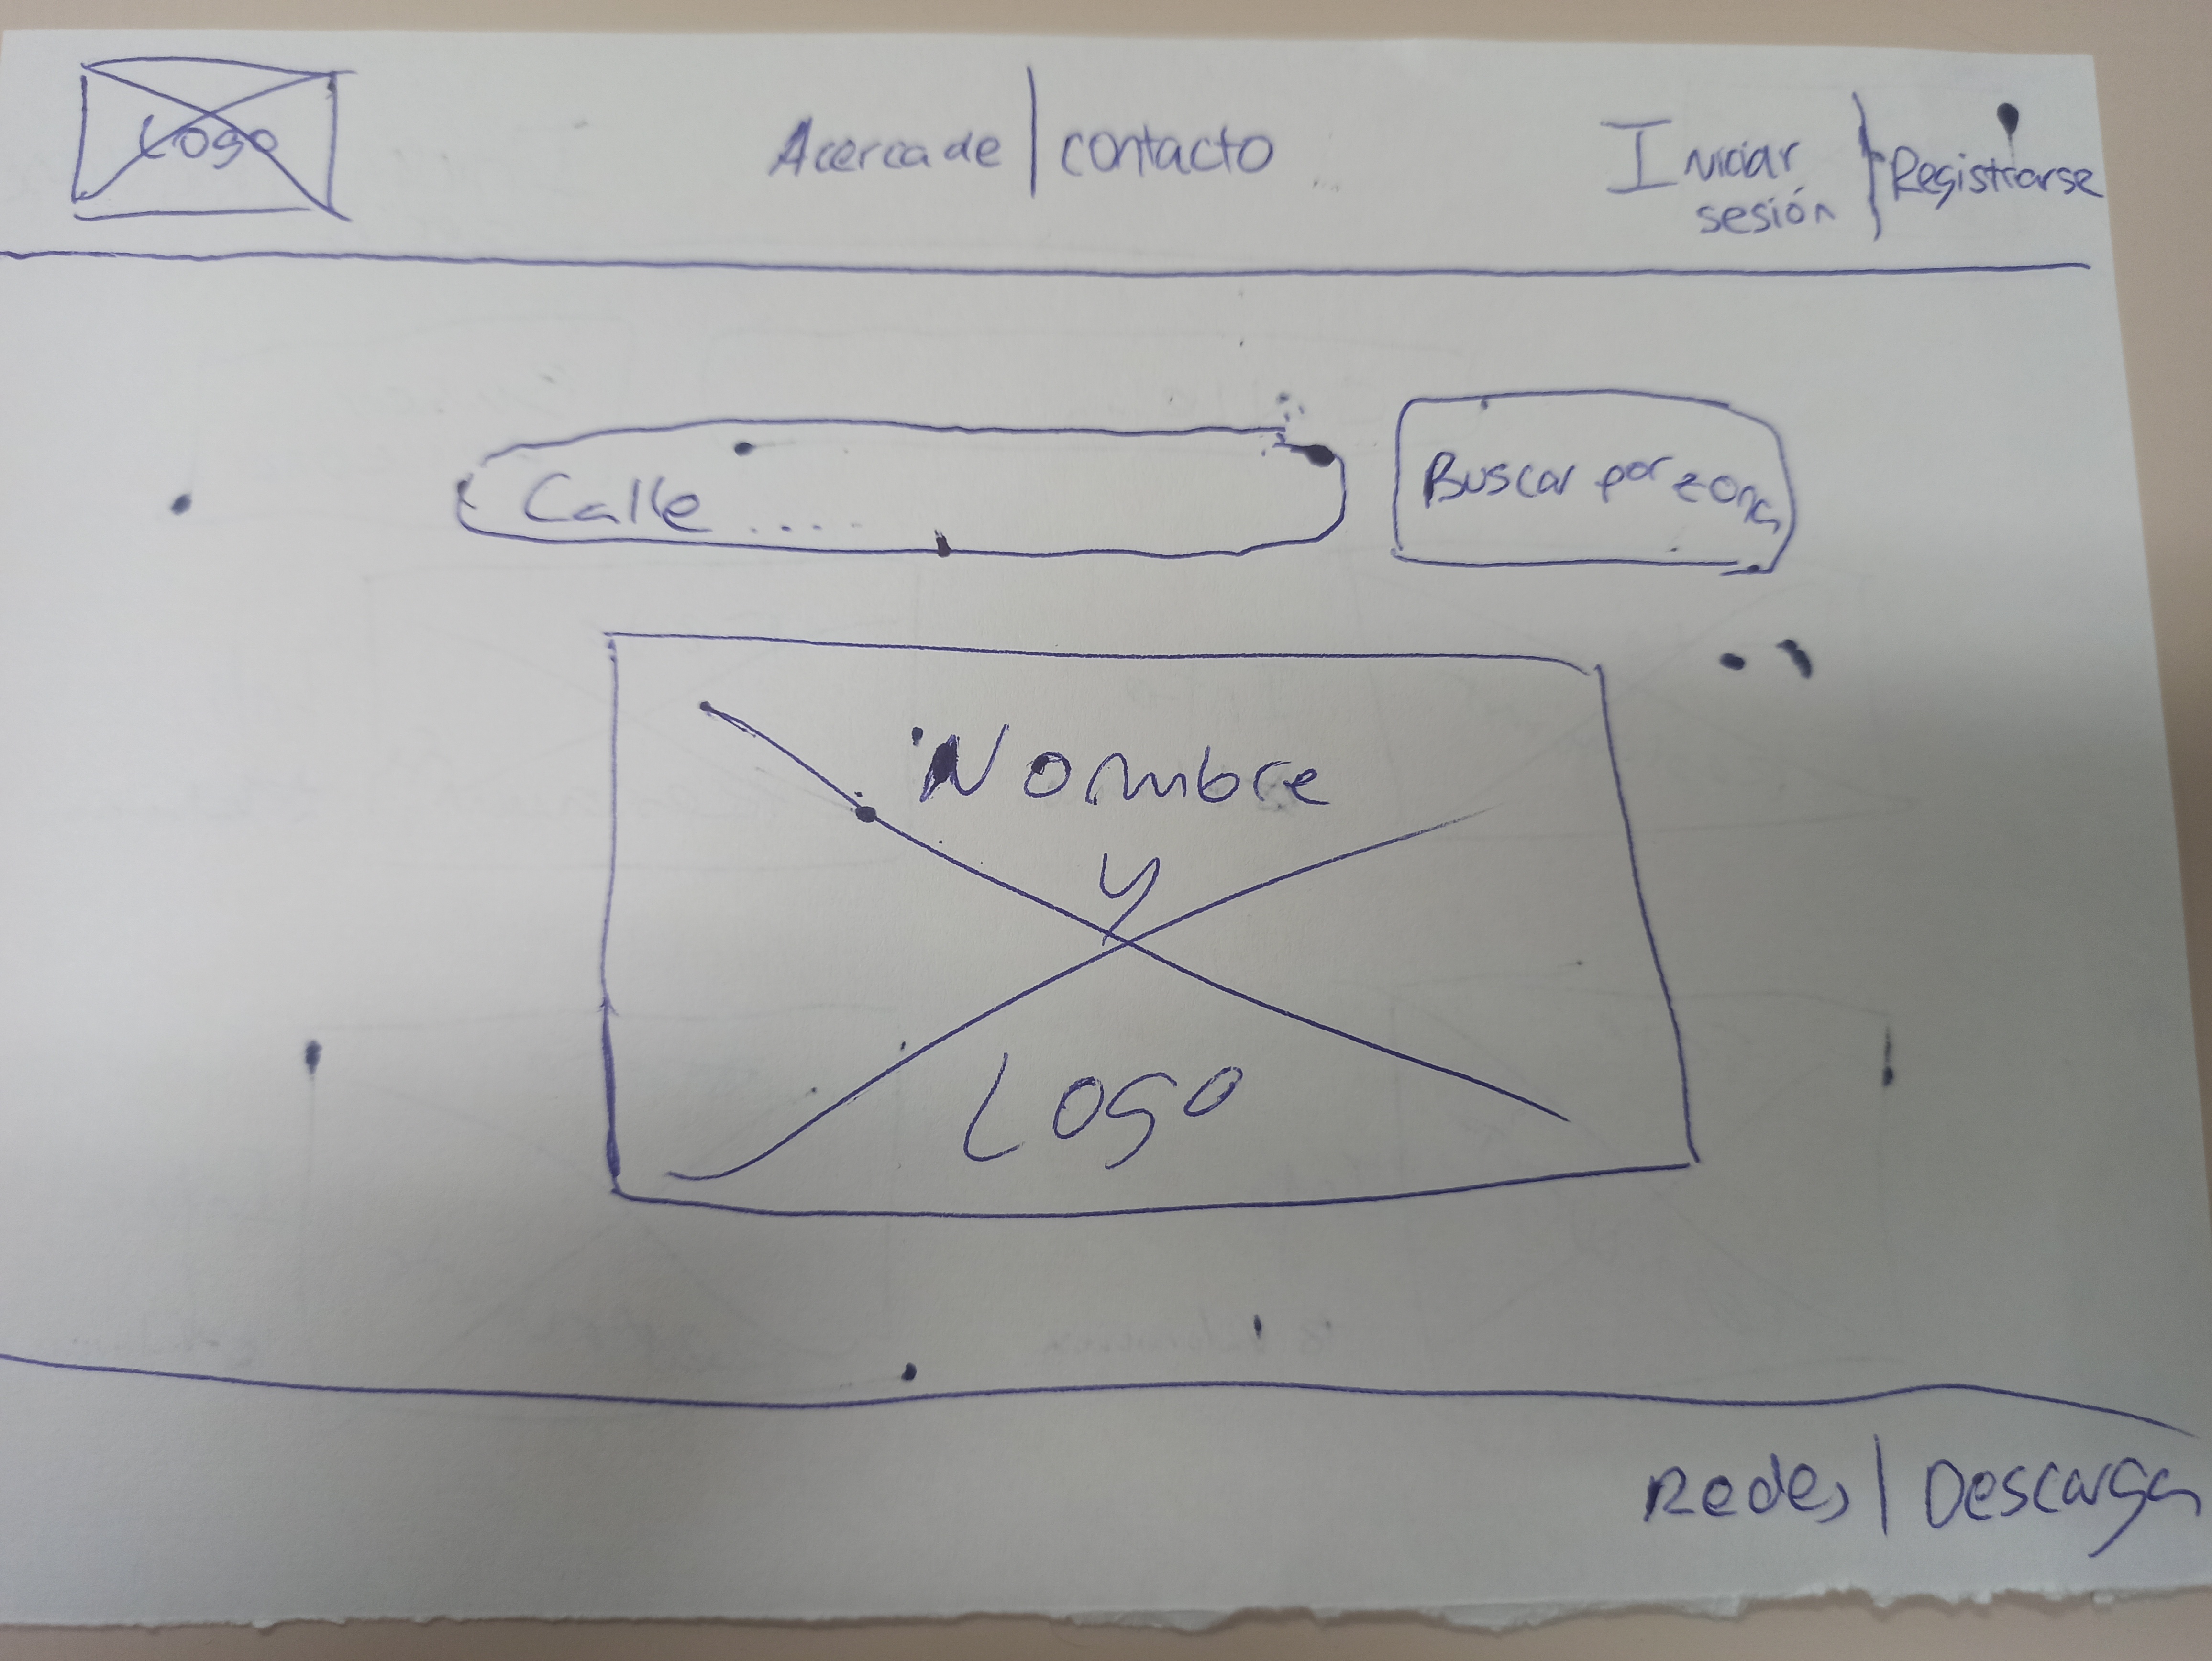 Logo
Acerca de | contacto
Iniciar sesión | Registrarse
Calle ....
Buscar por zona
Nombre
y
Logo
Redes | Descarga